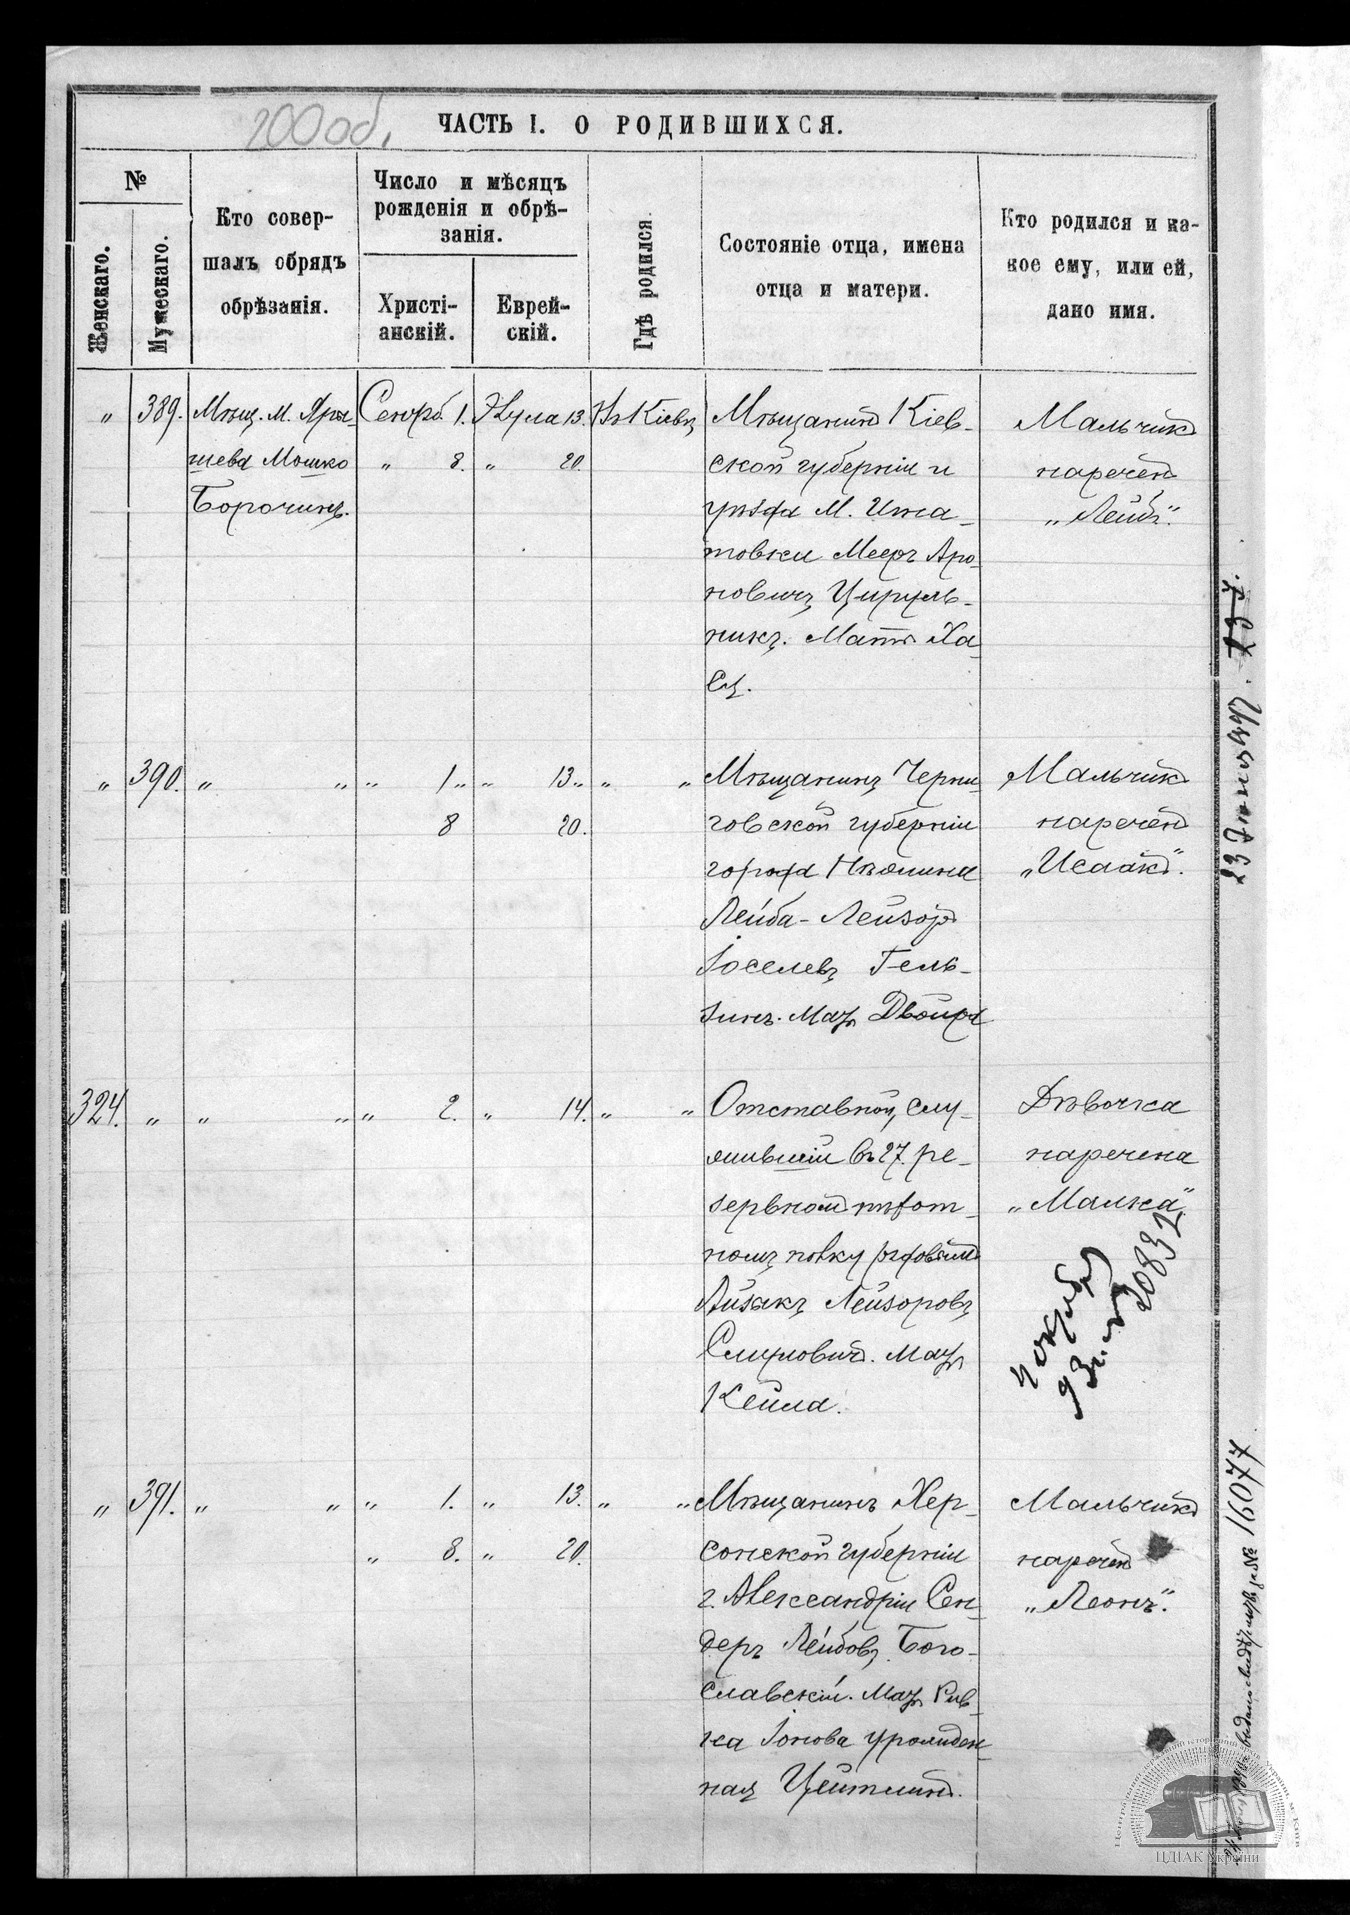 200 об.
ЧАСТЬ I. О РОДИВШИХСЯ.
№
Женскаго.
Мужескаго.
Кто совер-
шалъ обрядъ
обрѣзанія.
Число и мѣсяцъ
рожденія и обрѣ-
занія.
Христі-
анскій.
Еврей-
скій.
Гдѣ родился.
Состояніе отца, имена
отца и матери.
Кто родился и ка-
кое ему, или ей,
дано имя.
" 389.
Мѣщ. м. Яры-
шева Мошко
Борочинъ.
1.
" 8.
13.
" 20.
Въ Кіевѣ
Мѣщанинъ Кіев-
ской губерніи и
уѣзда м. Игна-
товки Мееръ Аро-
новичъ Цируль-
никъ. Мать Ха-
ся.
Мальчикъ
нареченъ
„Лейбъ".
" 390. " " " 1. " " 13. " " "
8 20.
Мѣщанинъ Черни-
говской губерніи
города Нѣжина
Лейба-Лейзоръ
Іоселевъ Гель-
зинъ. Мать Двойра
Мальчикъ
нареченъ
„Исаакъ".
324. " " " " 2. " 14. " "
Отставной, слу-
жившій въ 27. ре-
зервномъ пѣхот-
номъ полку рядовымъ
Айзикъ Лейзоровъ
Смуловичъ. Мать
Кейла.
Дѣвочка
наречена
„Малка".
20832
" 391. " " " 1. " 13. " "
" 8. " 20.
Мѣщанинъ Хер-
сонской губерніи
г. Александріи Сен-
деръ Лейбовъ Бого-
славскій. Мать Рив-
ка Іонова урожден-
ная Цейтлинъ.
Мальчикъ
нареченъ
„Леонъ".
№ 16077
ЦДІАК України